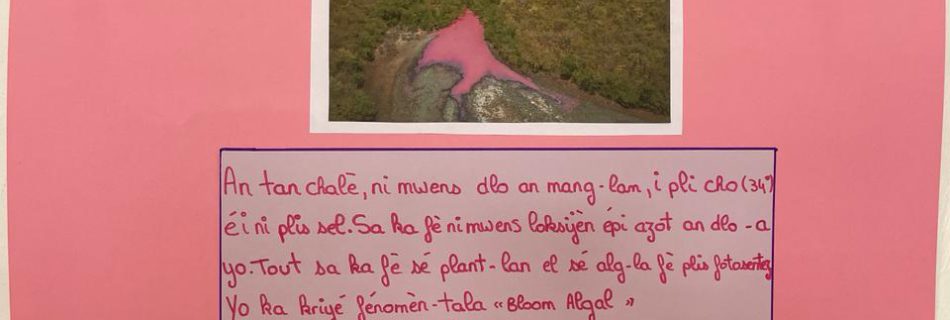 An tan chalè, ni mwens dlo an mang-lan, i pli cho (34°)
é i ni plis sel. Sa ka fè ni mwens loksijèn épi azot an dlo-a
yo. Tout sa ka fè sé plant-lan el sé alg-la fè plis fotosentez
Yo ka kriyé fénomèn-tala « Bloom Algal »